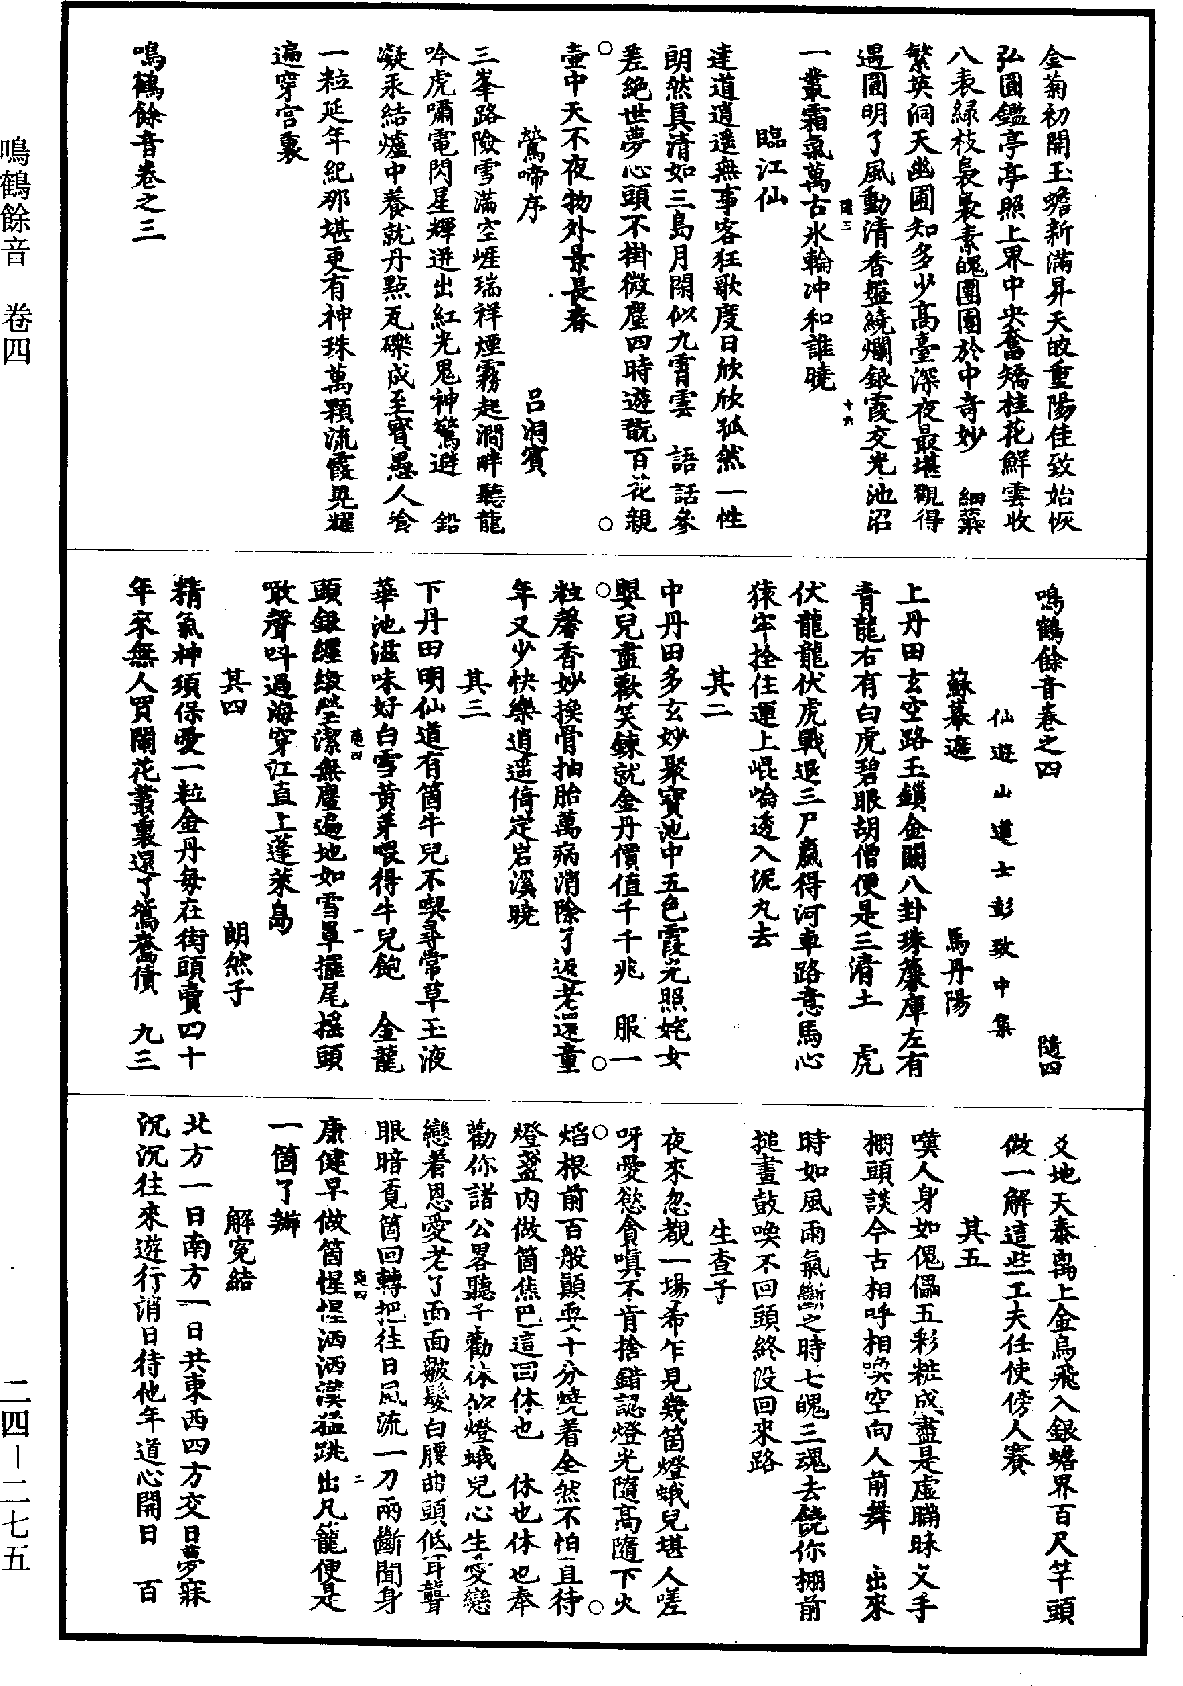 金菊初開玉蟾新滿昇天的重陽佳致始恢
弘圓鑑亭亭照上界中央奮矯桂花鮮雲收
八表綠枝裊裊素魄團團於中奇妙　細蘂
繁英洞天幽圃知多少高臺深夜最堪觀得
遇圓明了風動清香盤繞爛銀霞交光池沼
一叢霜氣萬古氷輪冲和誰曉
臨江仙
達道逍遥無事客狂歌度日欣欣孤然一性
朗然具清如三島月閑似九霄雲　語話參
差絕世夢心頭不掛微塵四時遊翫百花親
壺中天不夜物外景長春
鶯啼序　吕洞賓
三峯路險雪滿空崕瑞祥煙霧起澗畔聽龍
吟虎嘯電閃星輝迸出紅光鬼神驚避　鉛
凝汞結爐中養就丹㸃瓦礫成至寳愚人飡
一粒延年紀那堪更有神珠萬顆流霞晃耀
遍穿宫裏
鳴鶴餘音卷之三
鳴鶴餘音卷之四　隨四
仙遊山道士彭致中集
蘇幕遮　馬丹陽
上丹田玄空路玉鎖金關八卦珠簾庫左有
青龍右有白虎碧眼胡僧便是三清土　虎
伏龍龍伏虎戰退三尸嬴得河車路意馬心
猿牢拴住運上崐崘透入泥丸去
其二
中丹田多玄妙聚寳池中五色霞光照姹女
嬰兒盡歡笑鍊就金丹價值千千兆　服一
粒馨香妙換骨抽胎萬病消除了返老還童
年又少快樂逍遥倚定岩溪曉
其三
下丹田明仙道有箇牛兒不喫尋常草玉液
華池滋味好白雪黄芽喂得牛兒飽　金龍
頭銀纒綴瑩潔無塵遍地如雪草擺尾揺頭
敢聲呌過海穿江直上蓬萊島
其四　朗然子
精氣神須保愛一粒金丹每在街頭賣四十
年來無人買鬧花叢裏還了鴛鴦債　九三
爻地天泰离上金烏飛入銀蟾界百尺竿頭
做一解這些工夫任使傍人賽
其五
嘆人身如傀儡五彩粧成盡是虛瞞昧叉手
棚頭談今古相呼相喚空向人前舞　出來
時如風雨氣斷之時七魄三魂去饒你棚前
搥畫鼓喚不回頭終没回來路
生查子
夜來忽覩一場希乍見幾箇燈蛾兒堪人嗟
呀愛慾貪嗔不肯捨錯認燈光隨高隨下火
焰根前百般顛耍十分燒着全然不怕直待
燈盞内做箇焦巴這回休也　休也休也奉
勸你諸公畧聽千勸休似燈蛾兒心生愛戀
戀着恩愛老了面面皺髮白腰曲頭低耳聾
眼暗覔箇回轉把往日風流一刀兩斷間身
康健早做箇惺惺洒洒漢猛跳出凡籠便是
一箇了辦
解寃結
北方一日南方一日共東西四方交日夢寐
沉沉往來遊行消日待他年道心開日　百
鳴鶴餘音　卷四
二四—二七五